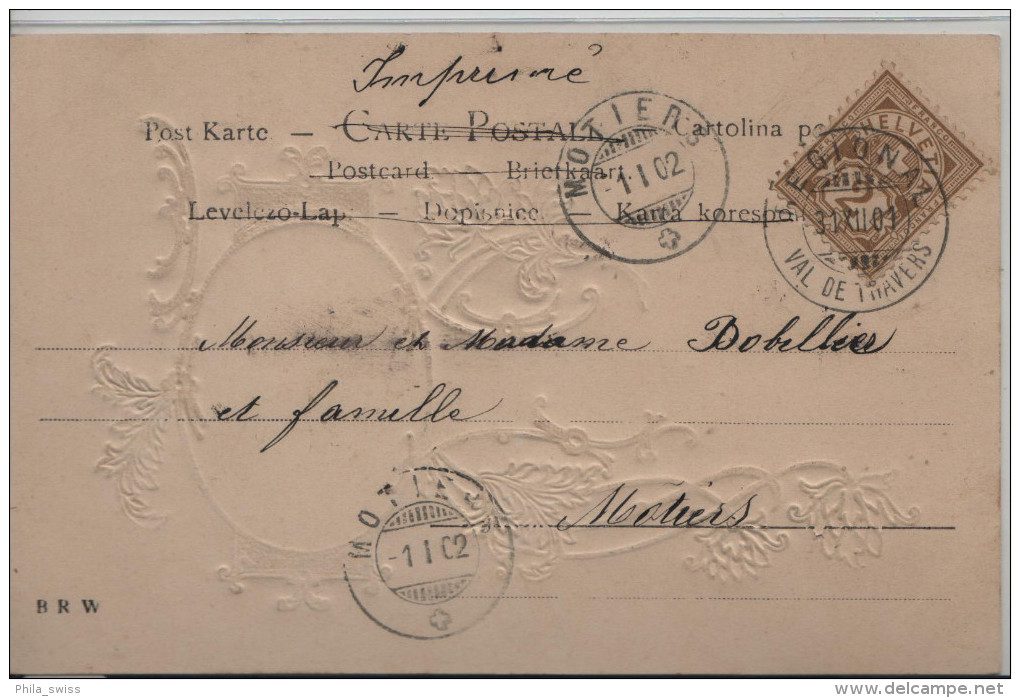 Imprimé
Post Karte. — CARTE POSTALE — Cartolina
Postcard — Briefkaart
Levelezö-Lap. — Dopisnice. — Karta korespon
HELVETIA
FRANCO
2
REGIONAL
31 XII 01
VAL DE TRAVERS
MOTIERS
-1 I 02
Monsieur et Madame Bobillier
et famille
Môtiers
MOTIERS
-1 I 02
B R W
Phila_swiss
delcampe.net